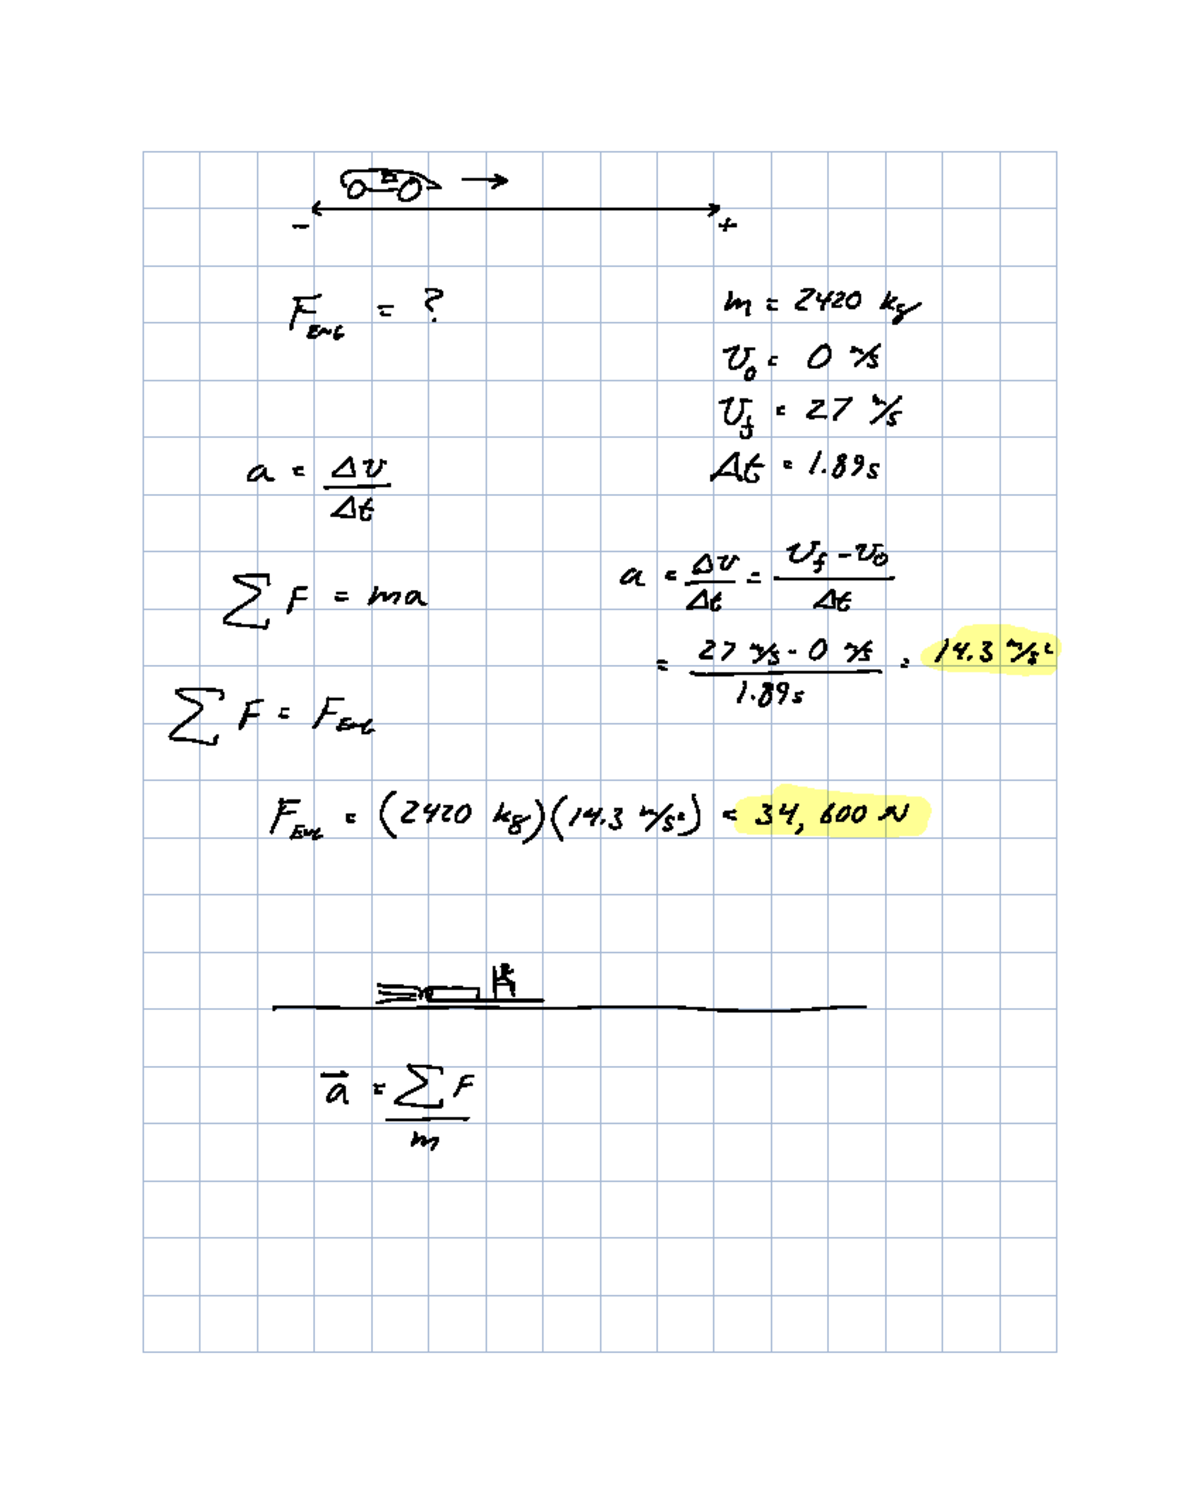 - +
F_Eng = ?
m = 2420 kg
v_0 = 0 m/s
v_f = 27 m/s
Δt = 1.89s
a = Δv/Δt
a = Δv/Δt = (v_f - v_0)/Δt
∑ F = ma
= (27 m/s - 0 m/s)/1.89s = 14.3 m/s²
∑ F = F_Eng
F_Eng = (2420 kg)(14.3 m/s²) = 34,600 N
a⃗ = ∑ F/m